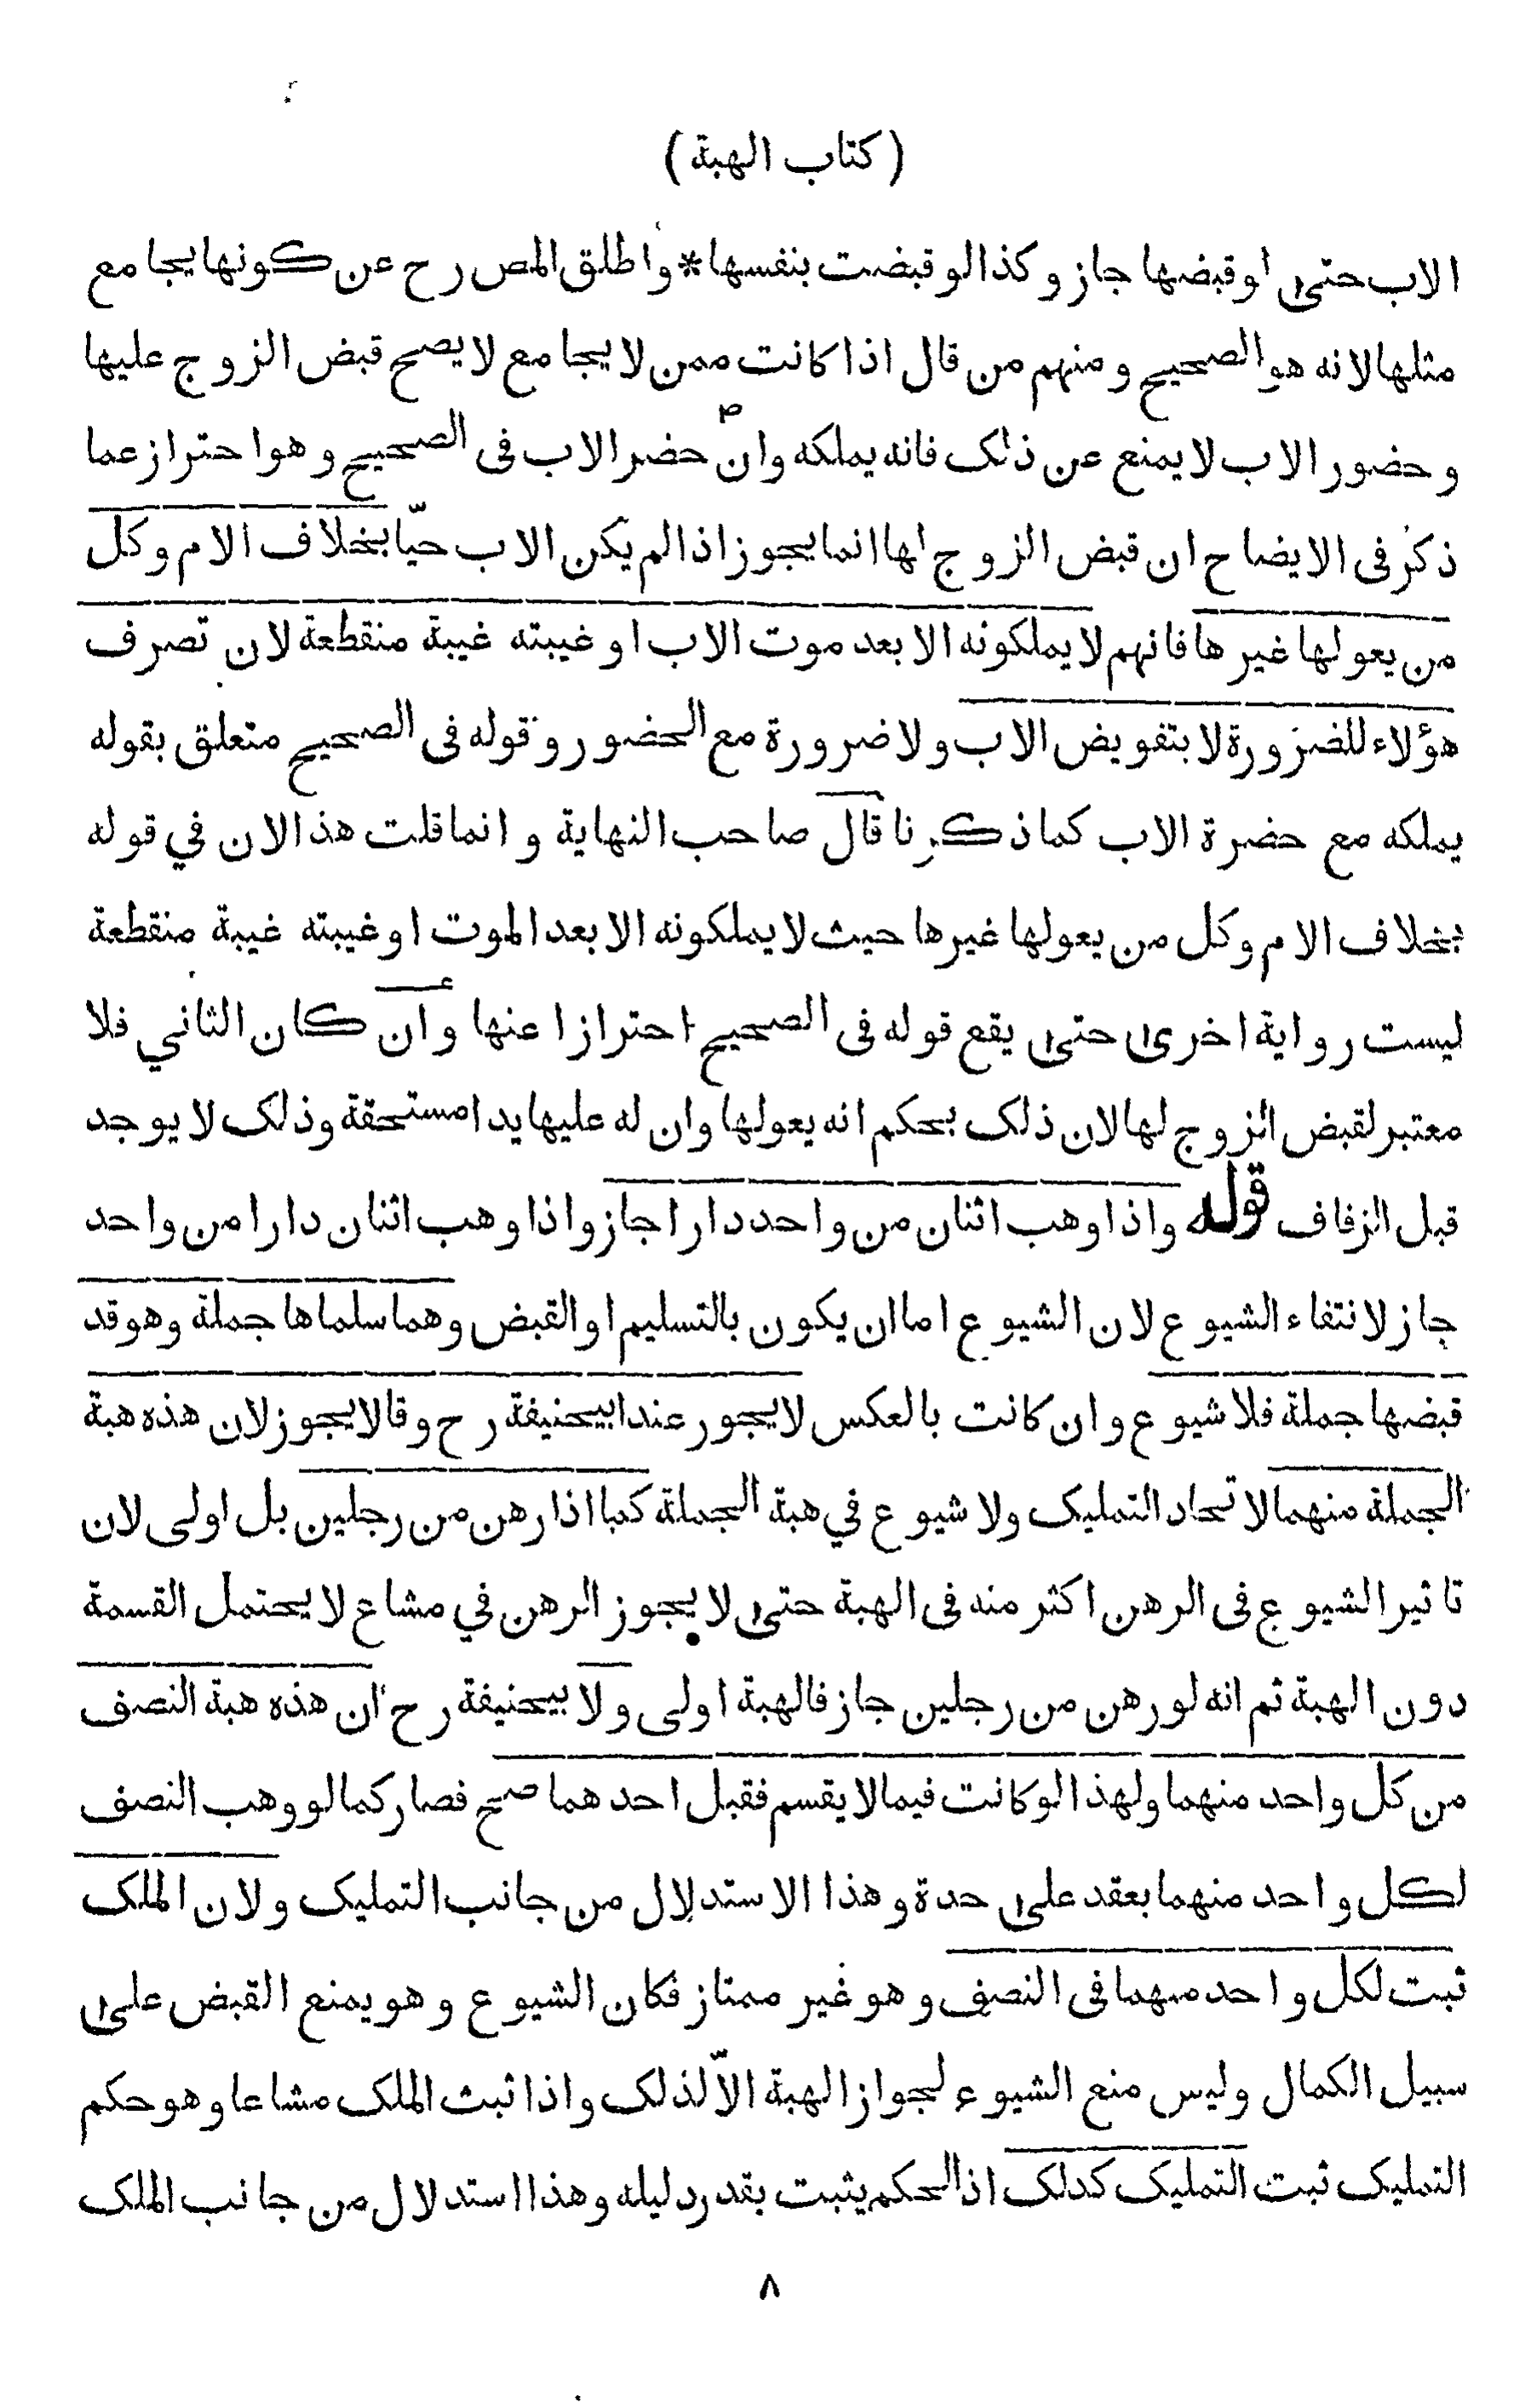 ( كتاب الهبة )
الاب حتى لو قبضها جاز وكذا لو قبضت بنفسها * واطلق المص رح عن كونها يجامع
مثلها لانه هو الصحيح ومنهم من قال اذا كانت ممن لا يجامع لا يصح قبض الزوج عليها
وحضور الاب لا يمنع عن ذلك فانه يملكه وان حضر الاب في الصحيح وهو احتراز عما
ذكر في الايضاح ان قبض الزوج لها انما يجوز اذا لم يكن الاب حيّا بخلاف الام وكل
من يعولها غيرها فانهم لا يملكونه الا بعد موت الاب او غيبته غيبة منقطعة لان تصرف
هؤلاء للضرورة لا بتفويض الاب ولا ضرورة مع الحضور وقوله في الصحيح متعلق بقوله
يملكه مع حضرة الاب كما ذكرنا قال صاحب النهاية وانما قلت هذا لان في قوله
بخلاف الام وكل من يعولها غيرها حيث لا يملكونه الا بعد الموت او غيبته غيبة منقطعة
ليست رواية اخرى حتى يقع قوله في الصحيح احترازا عنها وان كان الثاني فلا
معتبر لقبض الزوج لها لان ذلك بحكم انه يعولها وان له عليها يدا مستحقة وذلك لا يوجد
قبل الزفاف قوله واذا وهب اثنان من واحد دارا جاز واذا وهب اثنان دارا من واحد
جاز لانتفاء الشيوع لان الشيوع اما ان يكون بالتسليم او القبض وهما سلماها جملة وهو قد
قبضها جملة فلا شيوع وان كانت بالعكس لا يجوز عند ابيحنيفة رح وقالا يجوز لان هذه هبة
الجملة منهما لاتحاد التمليك ولا شيوع في هبة الجملة كما اذا رهن من رجلين بل اولى لان
تاثير الشيوع في الرهن اكثر منه في الهبة حتى لا يجوز الرهن في مشاع لا يحتمل القسمة
دون الهبة ثم انه لو رهن من رجلين جاز فالهبة اولى ولابيحنيفة رح ان هذه هبة النصف
من كل واحد منهما ولهذا لو كانت فيما لا يقسم فقبل احدهما صح فصار كما لو وهب النصف
لكل واحد منهما بعقد على حدة وهذا الاستدلال من جانب التمليك ولان الملك
ثبت لكل واحد منهما في النصف وهو غير ممتاز فكان الشيوع وهو يمنع القبض على
سبيل الكمال وليس منع الشيوع لجواز الهبة الاّ لذلك واذا ثبت الملك مشاعا وهو حكم
التمليك ثبت التمليك كذلك اذ الحكم يثبت بقدر دليله وهذا استدلال من جانب الملك
٨